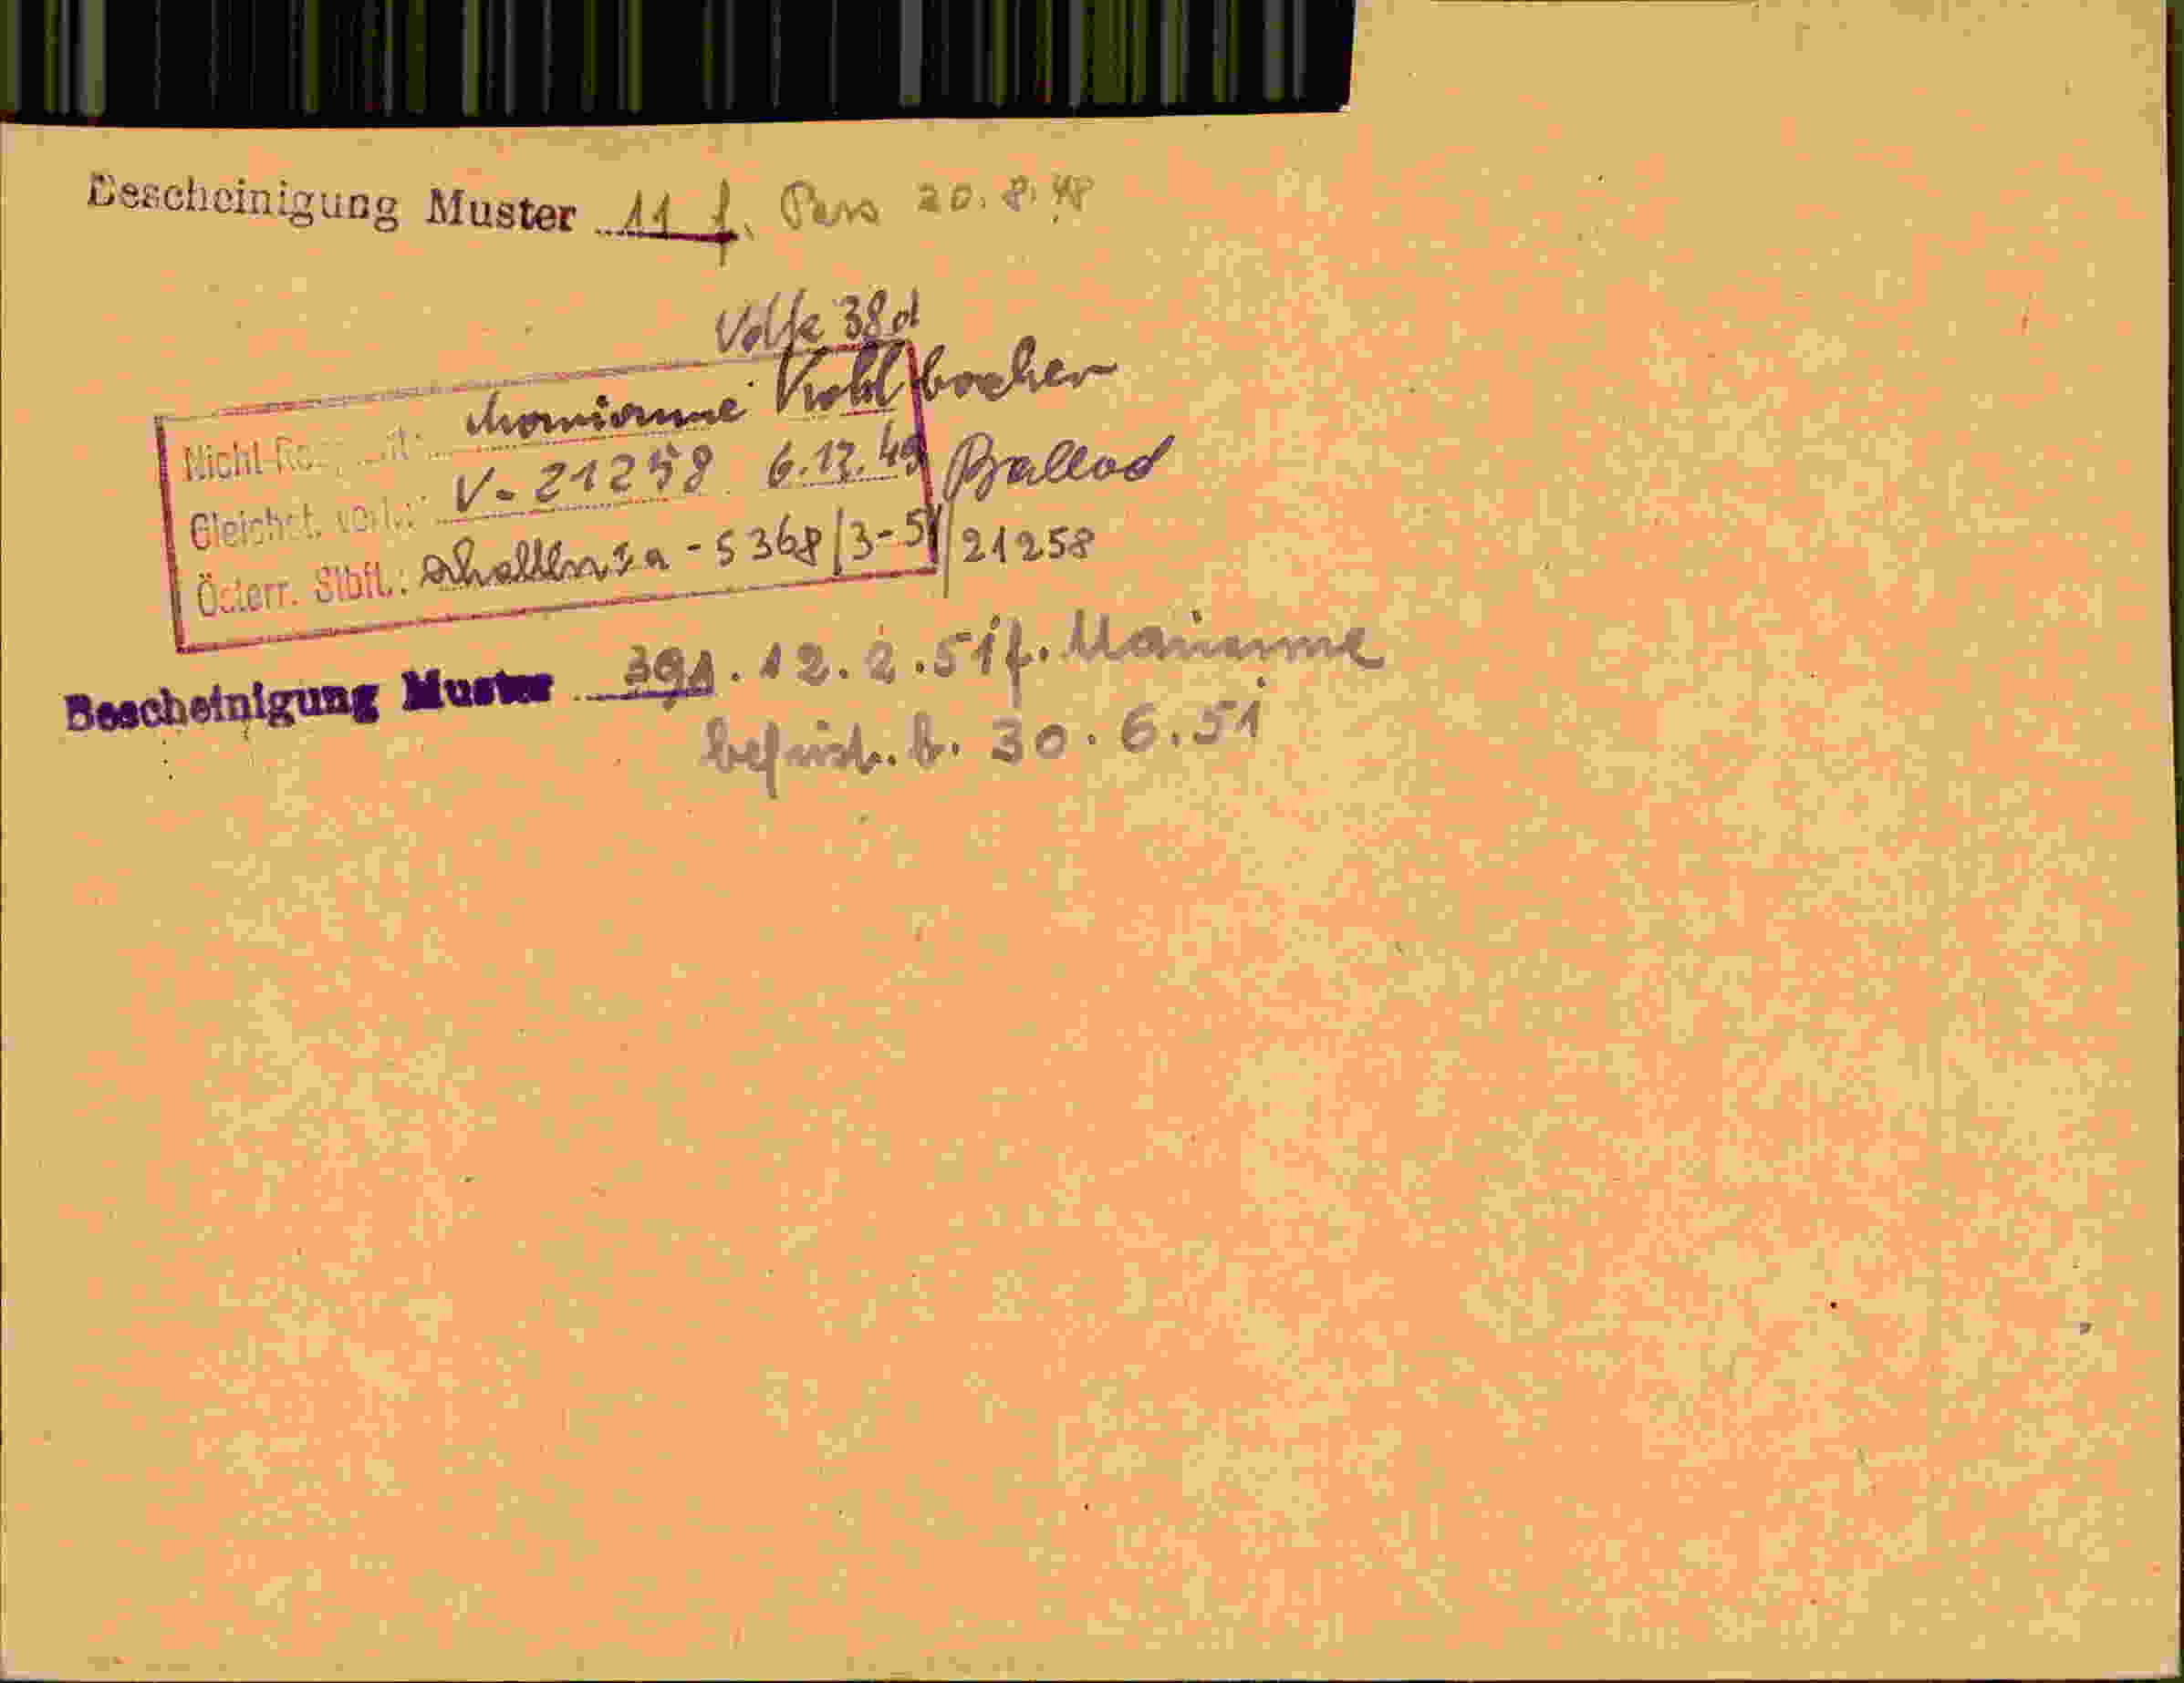 Bescheinigung Muster 11 f. Pass 20.8.48
Volk 38d
Nicht-Reg. Marianne Kohlbacher
Gleichst. verl.: V-21258 6.12.49 Ballod
Österr. Stbft.: - 5368/3-51/21258
Bescheinigung Muster 391. 12.2.51 f. Marianne
befrist. b. 30.6.51